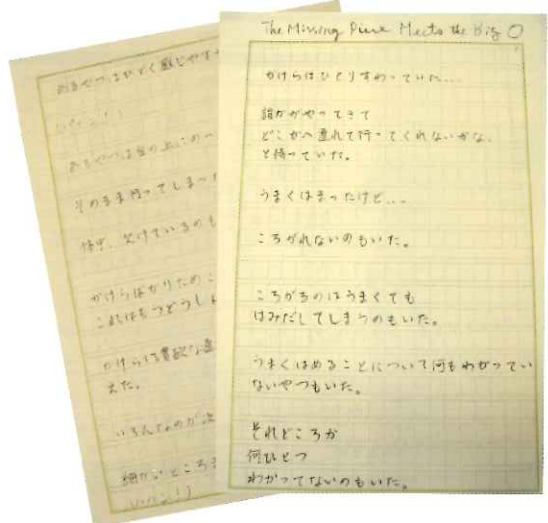 The Missing Piece Meets the Big O
かけらはひとりすわっていた…
誰かがやってきて
どこかへ連れて行ってくれないかな、
と待っていた。
うまくはまったけど…
ころがれないのもいた。
ころがるのはうまくても
はみだしてしまうのもいた。
うまくはめることについて何もわかってい
ないやつもいた。
それどころか
何ひとつ
わかってないのもいた。
あるやつはひどく感じやすか
(パチン!)
あるやつは
そのまま行ってしまった
欠けているのも
かけらばかりためこ
これはもう
かけらは貪欲な
えた。
いろんなのが次
細かいところ